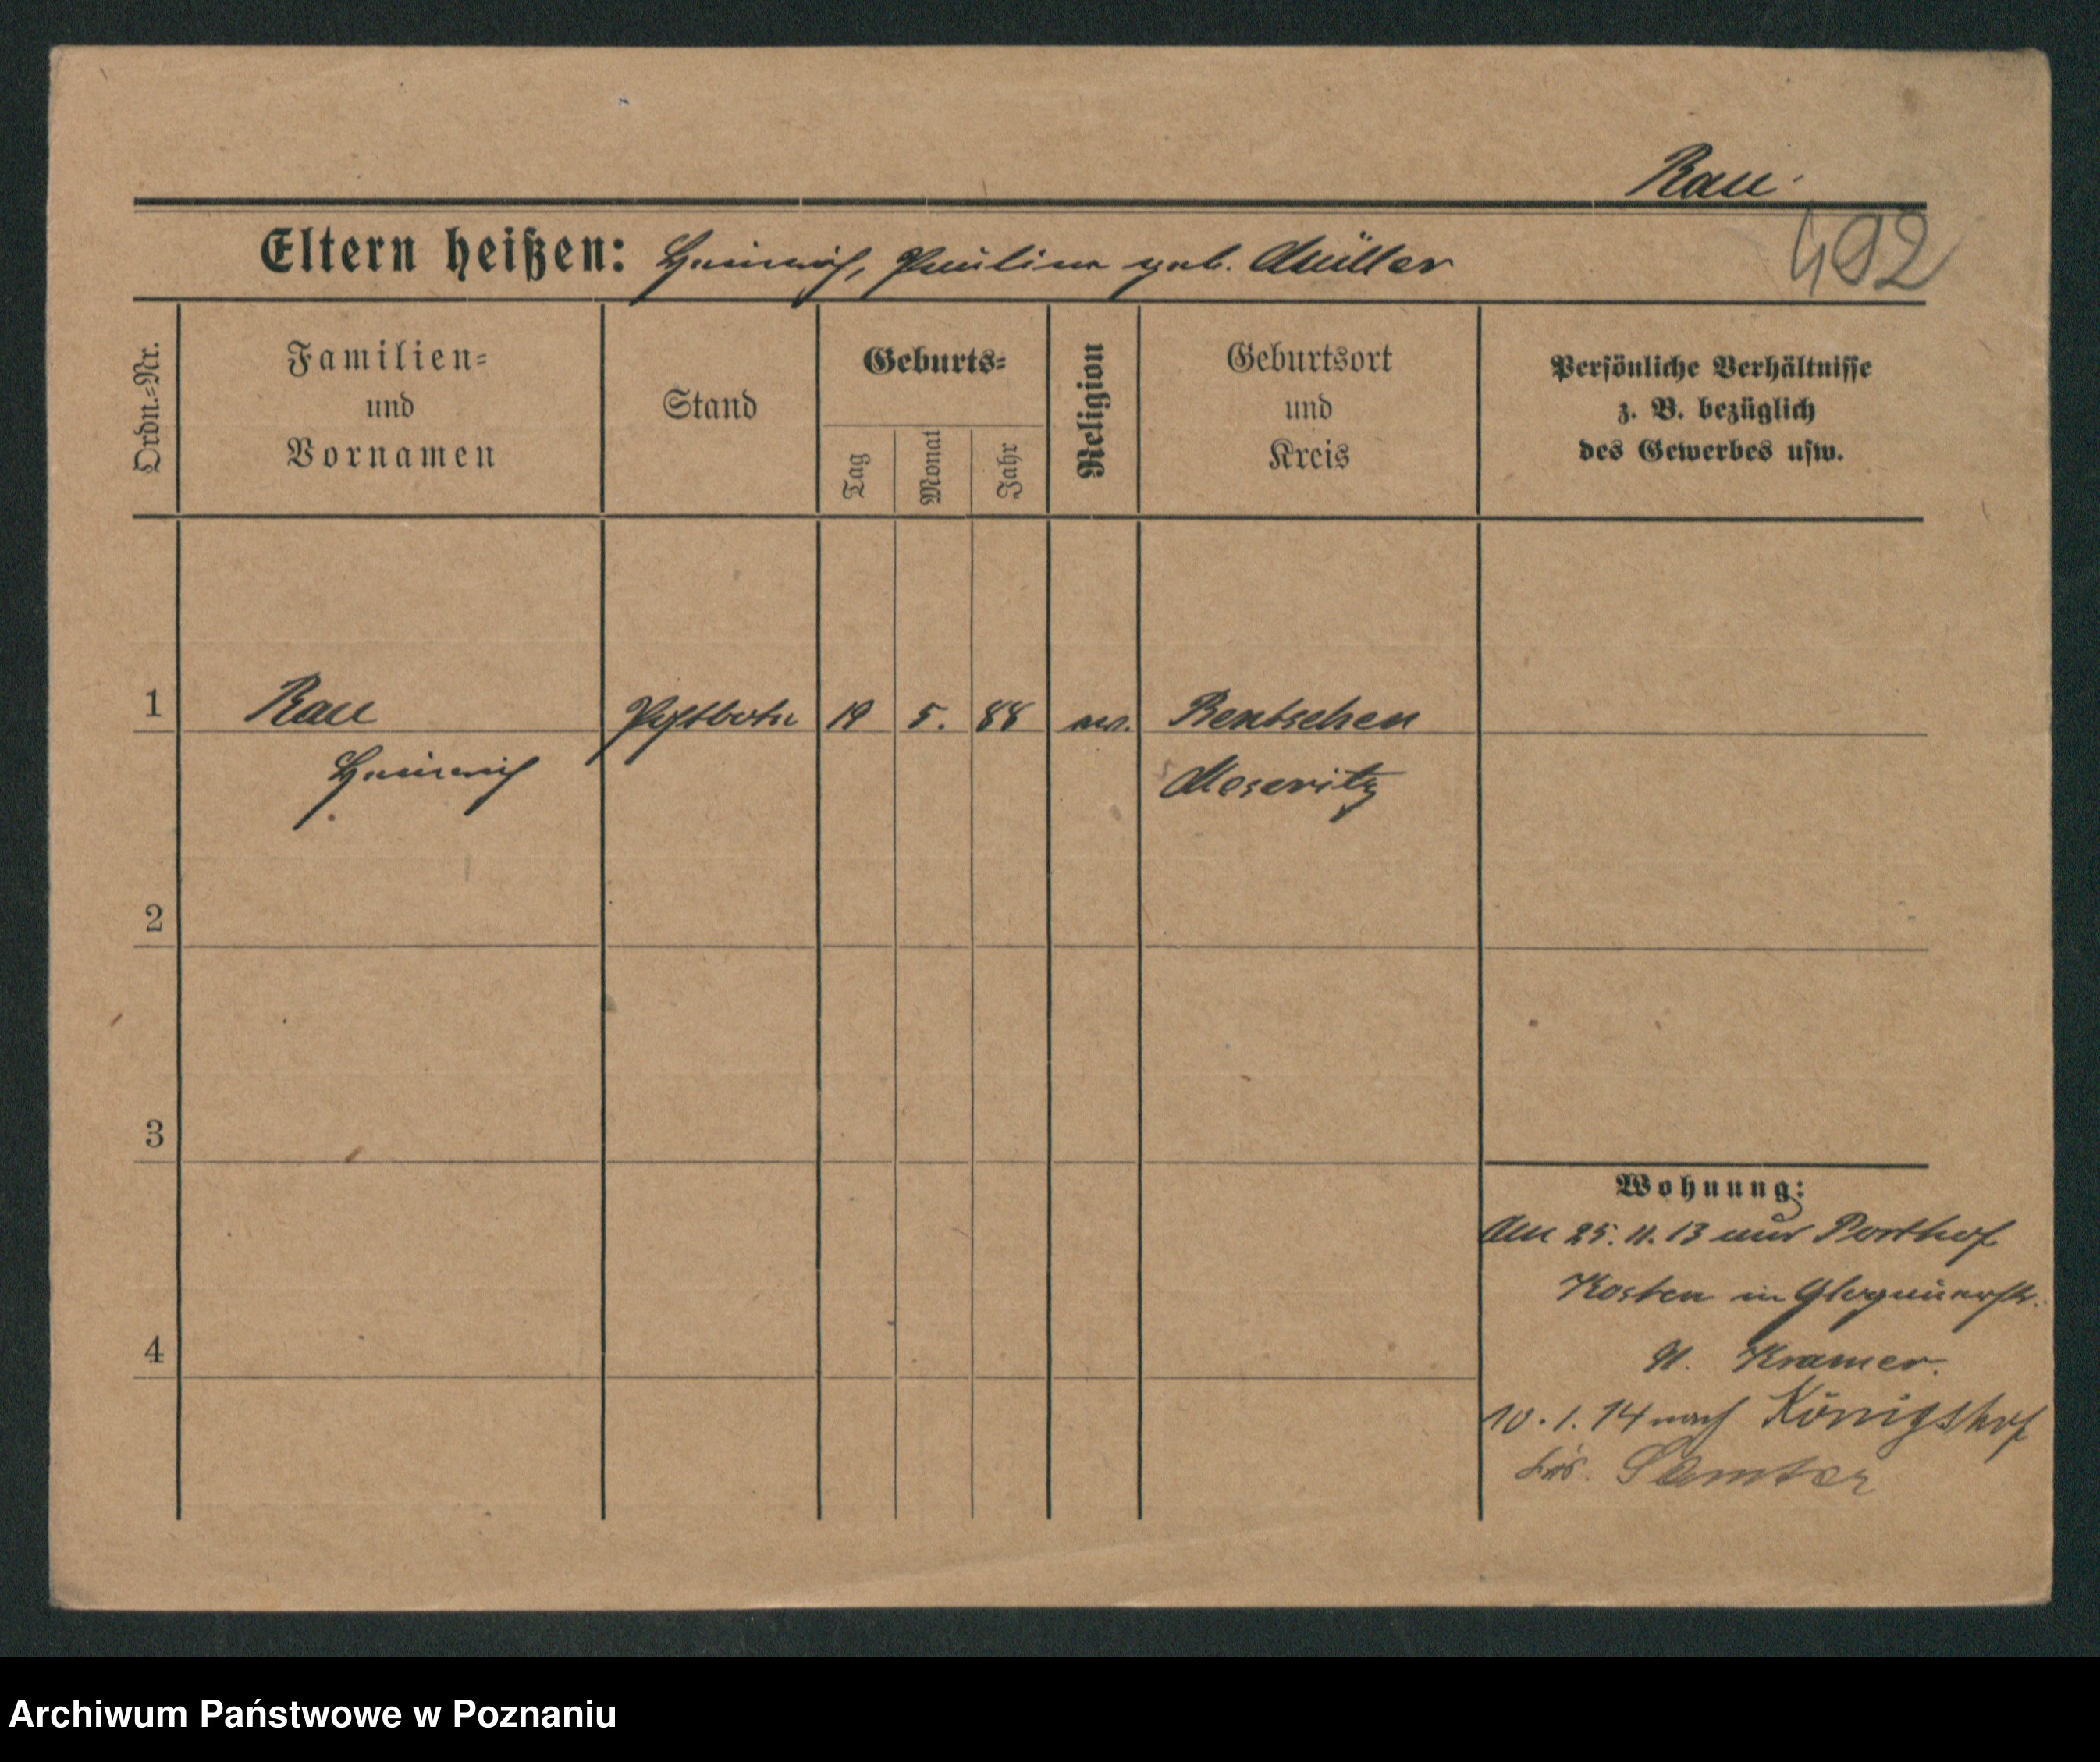 Rau
492
Eltern heißen: Heinrich, Pauline geb. Müller
Ordn.-Nr.
Familien-
und
Vornamen
Stand
Geburts-
Tag
Monat
Jahr
Religion
Geburtsort
und
Kreis
Persönliche Verhältnisse
z. B. bezüglich
des Gewerbes usw.
1 Rau Postbote 19 5. 88 ev. Bentschen
Heinrich Meseritz
2
3
4
Wohnung:
Am 25. 11. 13 aus
Kosten in Glogauerstr.
Kramer.
10. 1. 14 nach Königshof
Krs. Samter
Archiwum Państwowe w Poznaniu